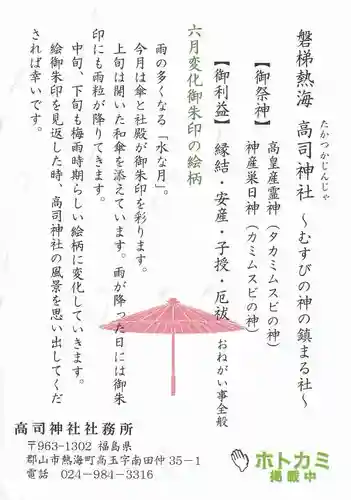 磐梯熱海 高司神社 ~むすびの神の鎮まる社~
たかつかじんじゃ
【御祭神】 高皇産霊神(タカミムスビの神)
神産巣日神(カミムスビの神)
【御利益】 縁結・安産・子授・厄祓 おねがい事全般
六月変化御朱印の絵柄
雨の多くなる「水な月」。
今月は傘と社殿が御朱印を彩ります。
上旬は開いた和傘を添えています。雨が降った日には御朱
印にも雨粒が降りてきます。
中旬、下旬も梅雨時期らしい絵柄に変化していきます。
絵御朱印を見返した時、高司神社の風景を思い出してくだ
されば幸いです。
高司神社社務所
〒963-1302 福島県
郡山市熱海町高玉字南田仲35-1
電話 024-984-3316
ホトカミ
掲載中